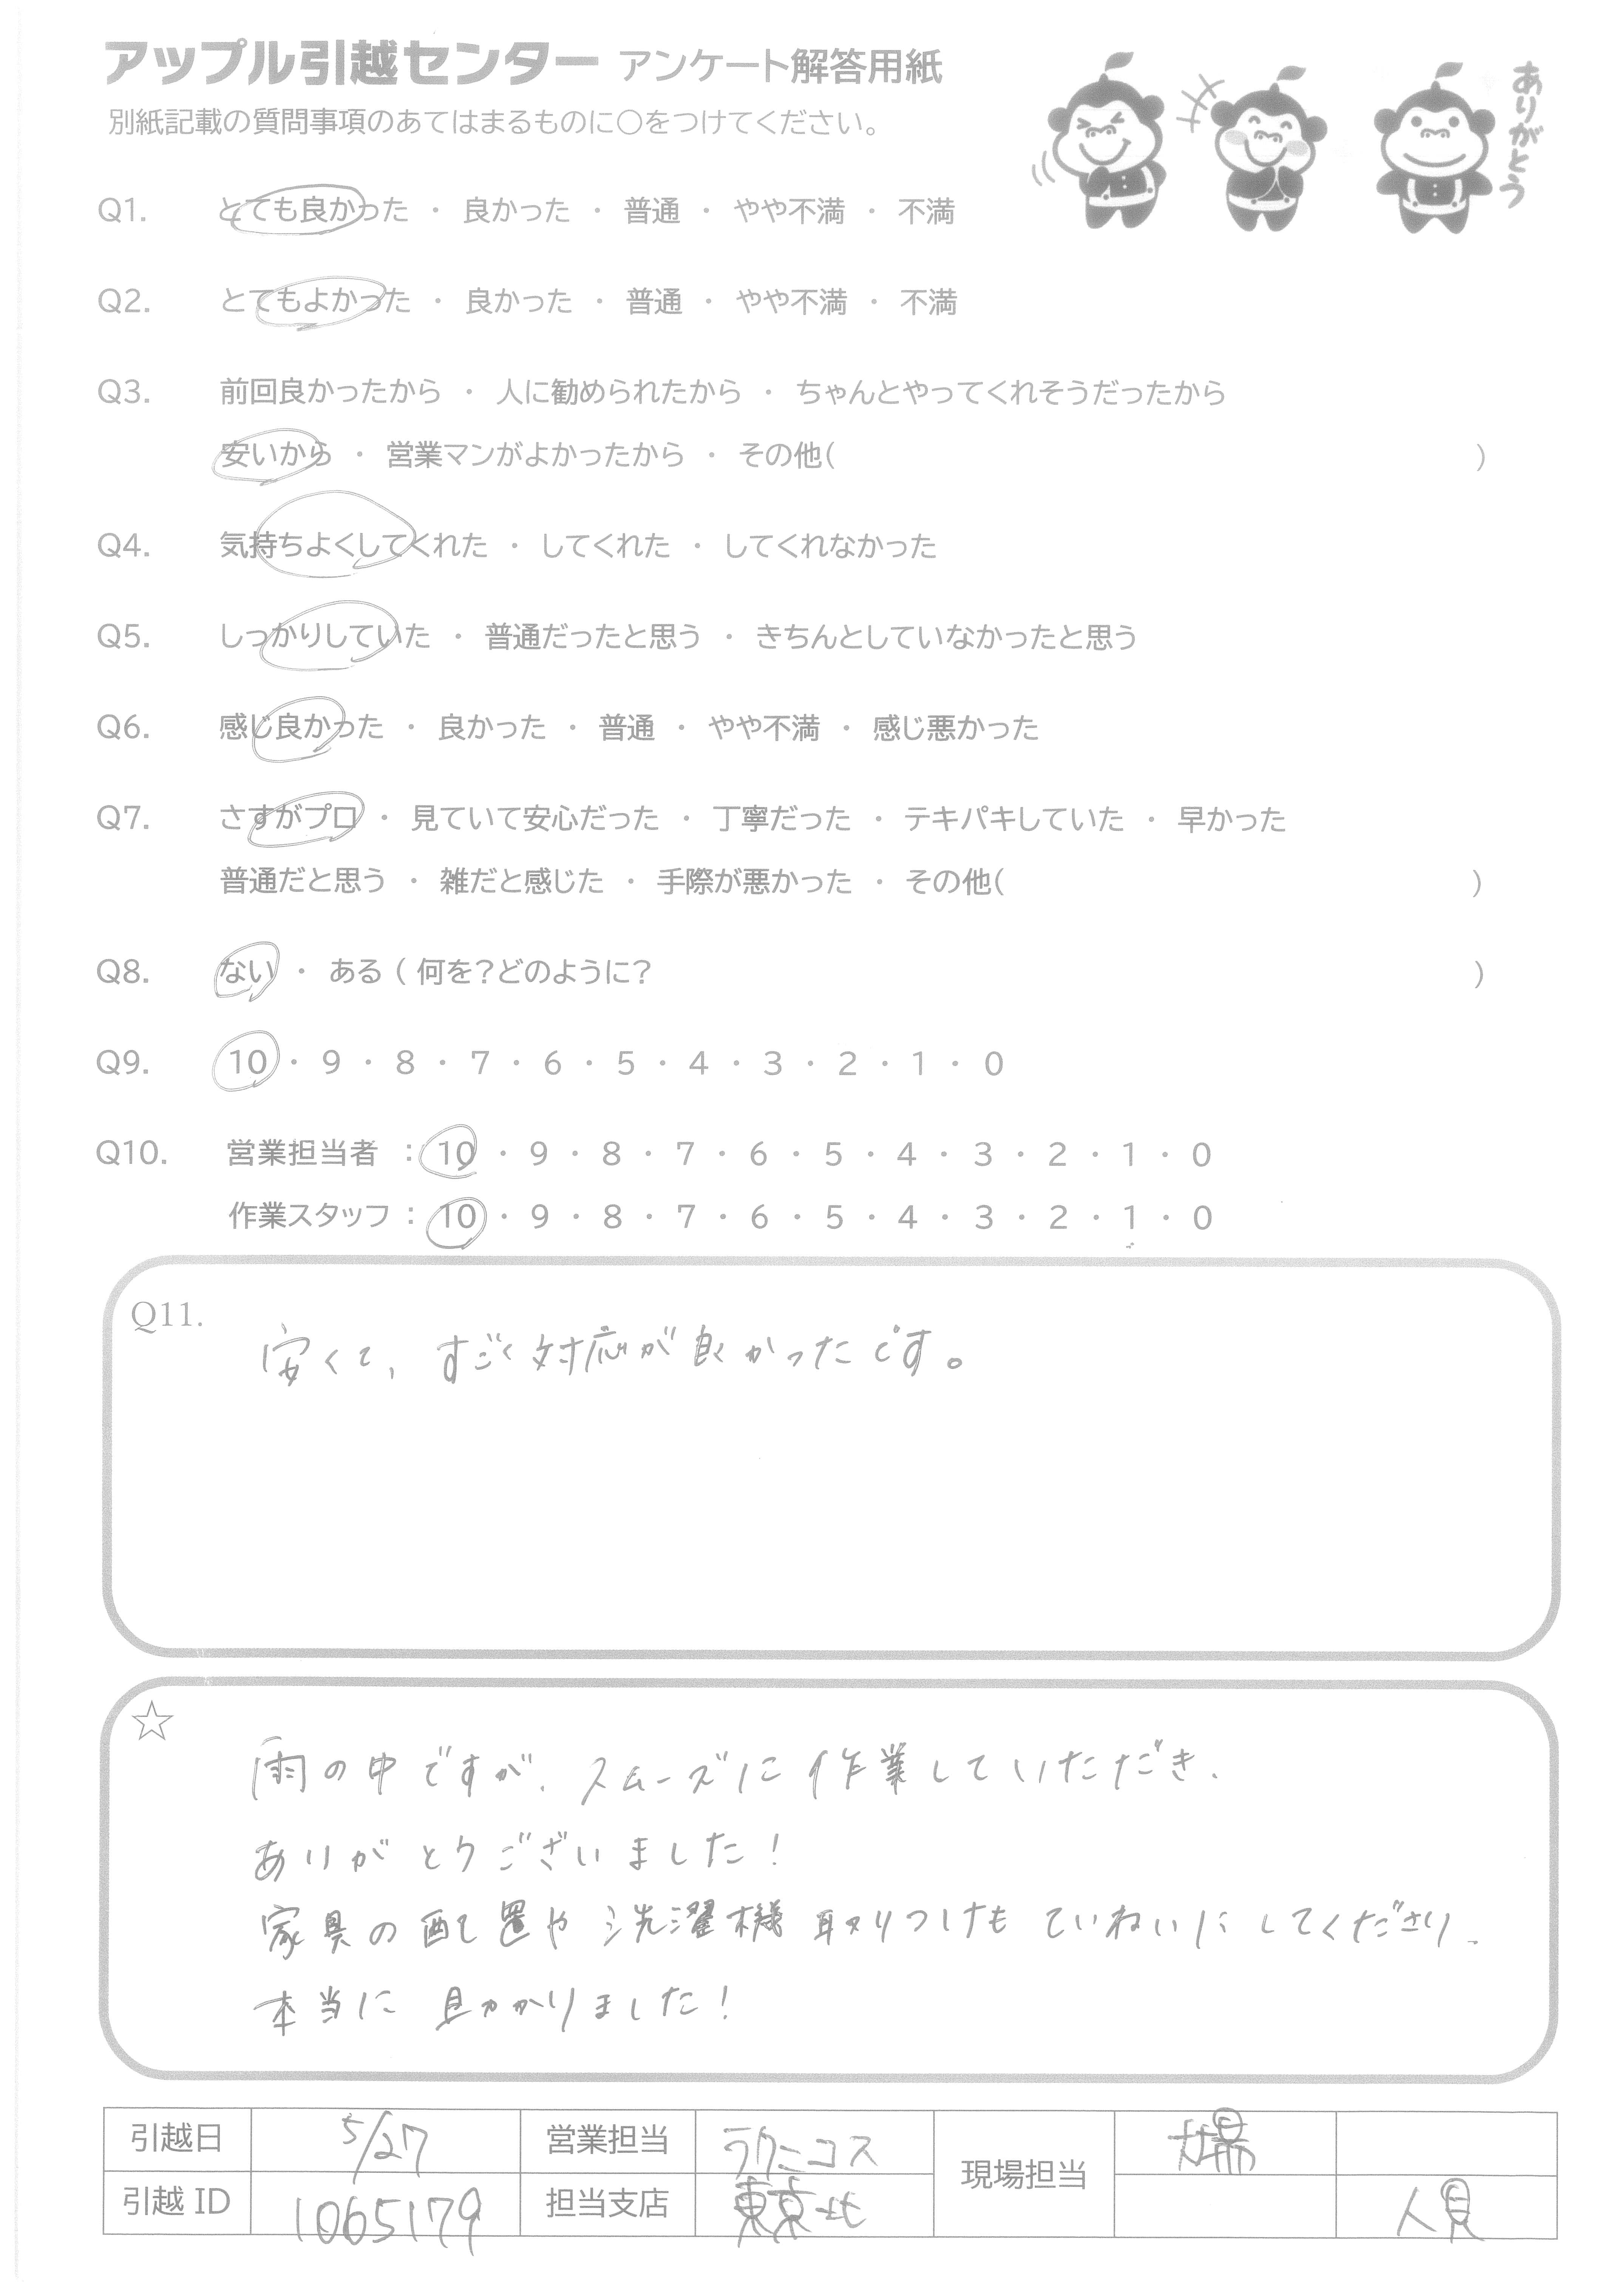 アップル引越センター アンケート解答用紙
別紙記載の質問事項のあてはまるものに○をつけてください。
ありがとう
Q1. とても良かった ・ 良かった ・ 普通 ・ やや不満 ・ 不満
Q2. とてもよかった ・ 良かった ・ 普通 ・ やや不満 ・ 不満
Q3. 前回良かったから ・ 人に勧められたから ・ ちゃんとやってくれそうだったから
安いから ・ 営業マンがよかったから ・ その他( )
Q4. 気持ちよくしてくれた ・ してくれた ・ してくれなかった
Q5. しっかりしていた ・ 普通だったと思う ・ きちんとしていなかったと思う
Q6. 感じ良かった ・ 良かった ・ 普通 ・ やや不満 ・ 感じ悪かった
Q7. さすがプロ ・ 見ていて安心だった ・ 丁寧だった ・ テキパキしていた ・ 早かった
普通だと思う ・ 雑だと感じた ・ 手際が悪かった ・ その他( )
Q8. ない ・ ある ( 何を?どのように? )
Q9. 10 ・ 9 ・ 8 ・ 7 ・ 6 ・ 5 ・ 4 ・ 3 ・ 2 ・ 1 ・ 0
Q10. 営業担当者 : 10 ・ 9 ・ 8 ・ 7 ・ 6 ・ 5 ・ 4 ・ 3 ・ 2 ・ 1 ・ 0
作業スタッフ : 10 ・ 9 ・ 8 ・ 7 ・ 6 ・ 5 ・ 4 ・ 3 ・ 2 ・ 1 ・ 0
Q11.
安くて、すごく対応が良かったです。
☆
雨の中ですが、スムーズに作業していただき、
ありがとうございました!
家具の配置や洗濯機取りつけもていねいにしてくださり、
本当に助かりました!
引越日 5/27 営業担当 ラクニコス 現場担当
引越 ID 1065179 担当支店 東京北 人員